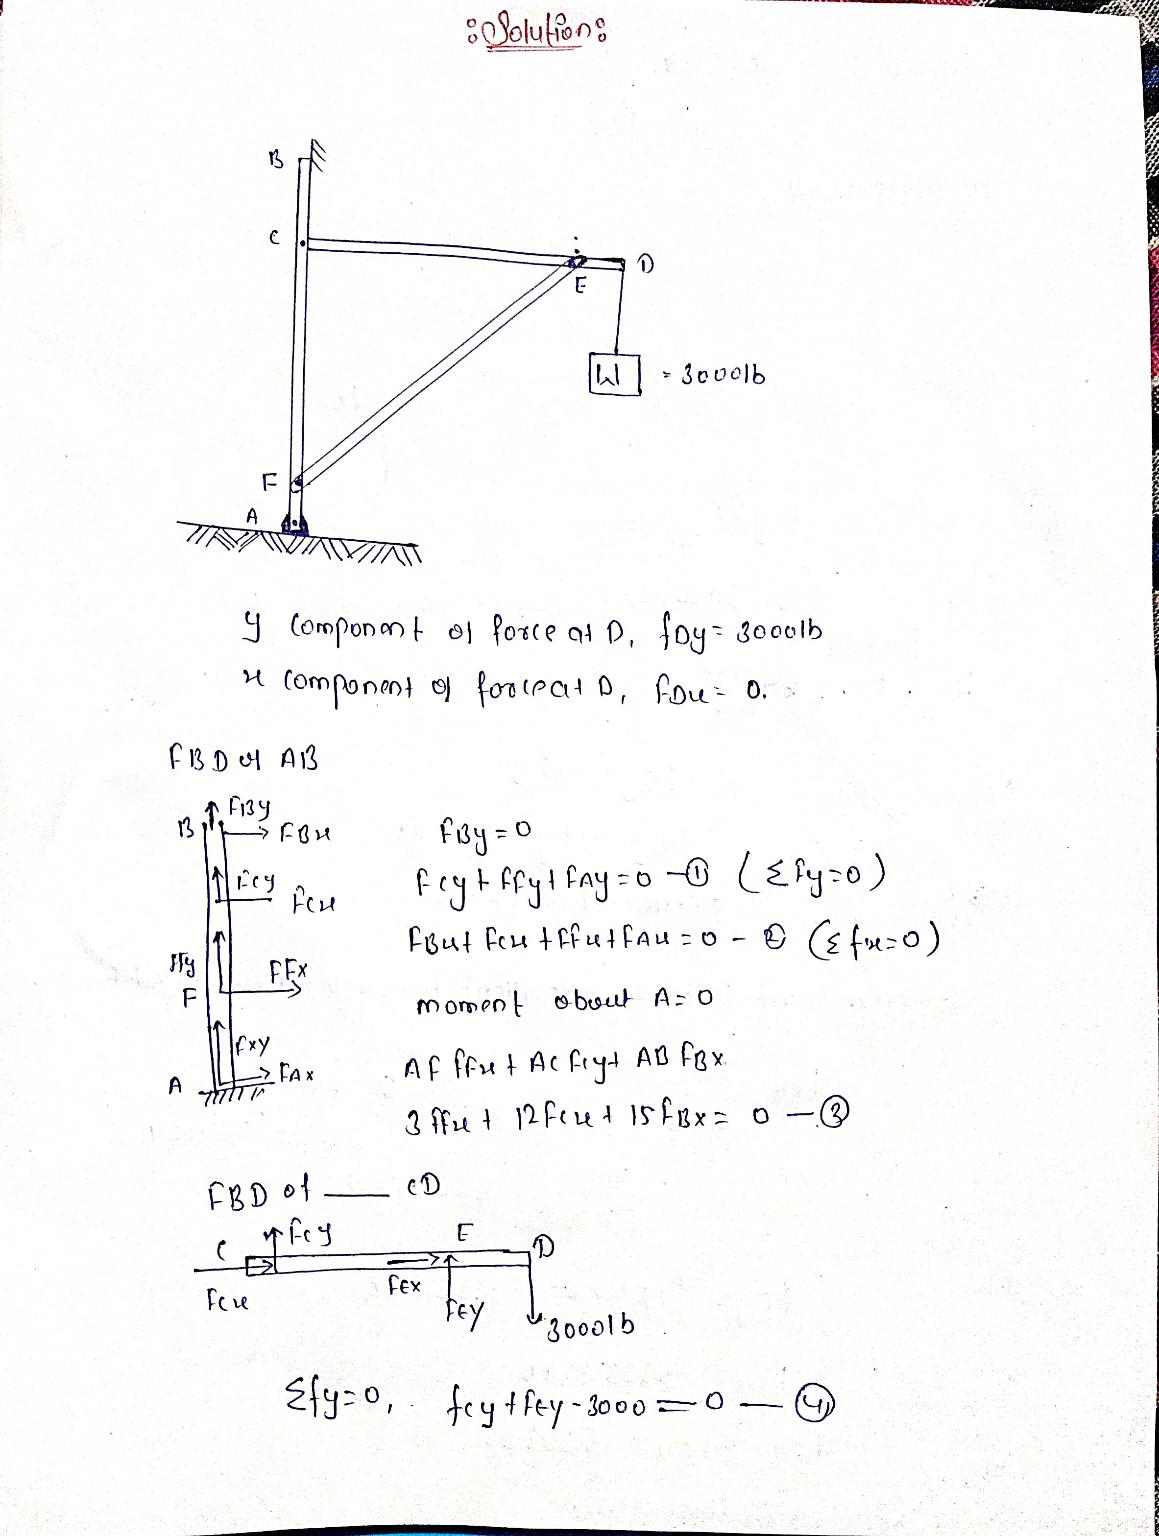 :Solution:
B
C
D
E
W = 3000lb
F
A
y component of force at D, fDy = 3000lb
x component of force at D, FDx = 0.
FBD of AB
FBy
B FBx
FBy = 0
Fcy
Fcx
Fcy + FFy + FAy = 0 - ① (Σfy=0)
FBx + Fcx + FFx + FAx = 0 - ② (Σfx=0)
FFy
FFx
F
moment about A = 0
Fxy
FAx
A
AF FFx + AC Fcy + AB FBx
3 FFx + 12 Fcx + 15 FBx = 0 - ③
FBD of — CD
C Fcy E D
Fcx FEx FEy 3000lb
Σfy=0, fcy + fEy - 3000 = 0 - ④